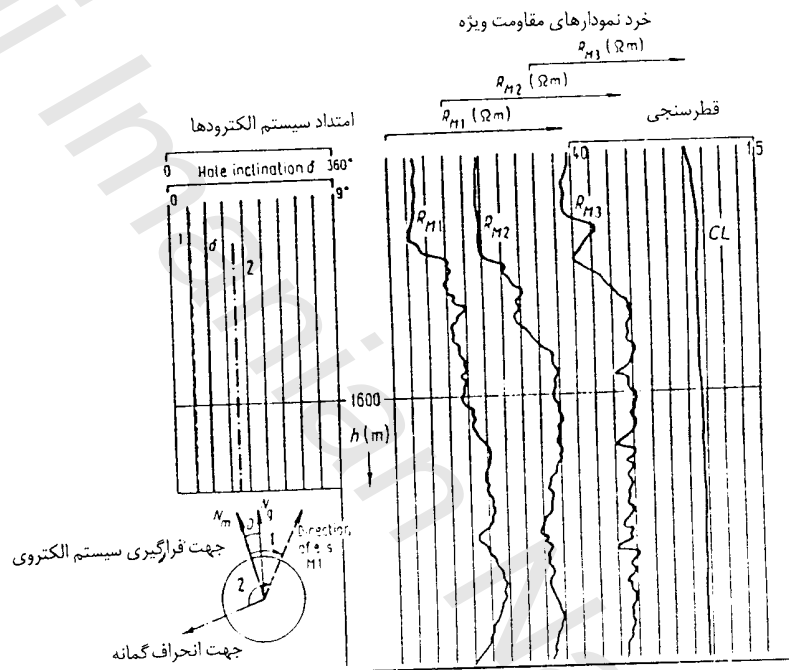 خرد نمودارهای مقاومت ویژه
R_M3 (Ωm)
R_M2 (Ωm)
R_M1 (Ωm)
امتداد سیستم الکترودها
قطرسنجی
0 Hole inclination δ 360°
0 9°
40 15
1 δ 2
R_M1 R_M2 R_M3 CL
1600
h (m)
N_m N_g
Direction
of e.s
M1
1
2
جهت فراگیری سیستم الکتروی
جهت انحراف گمانه